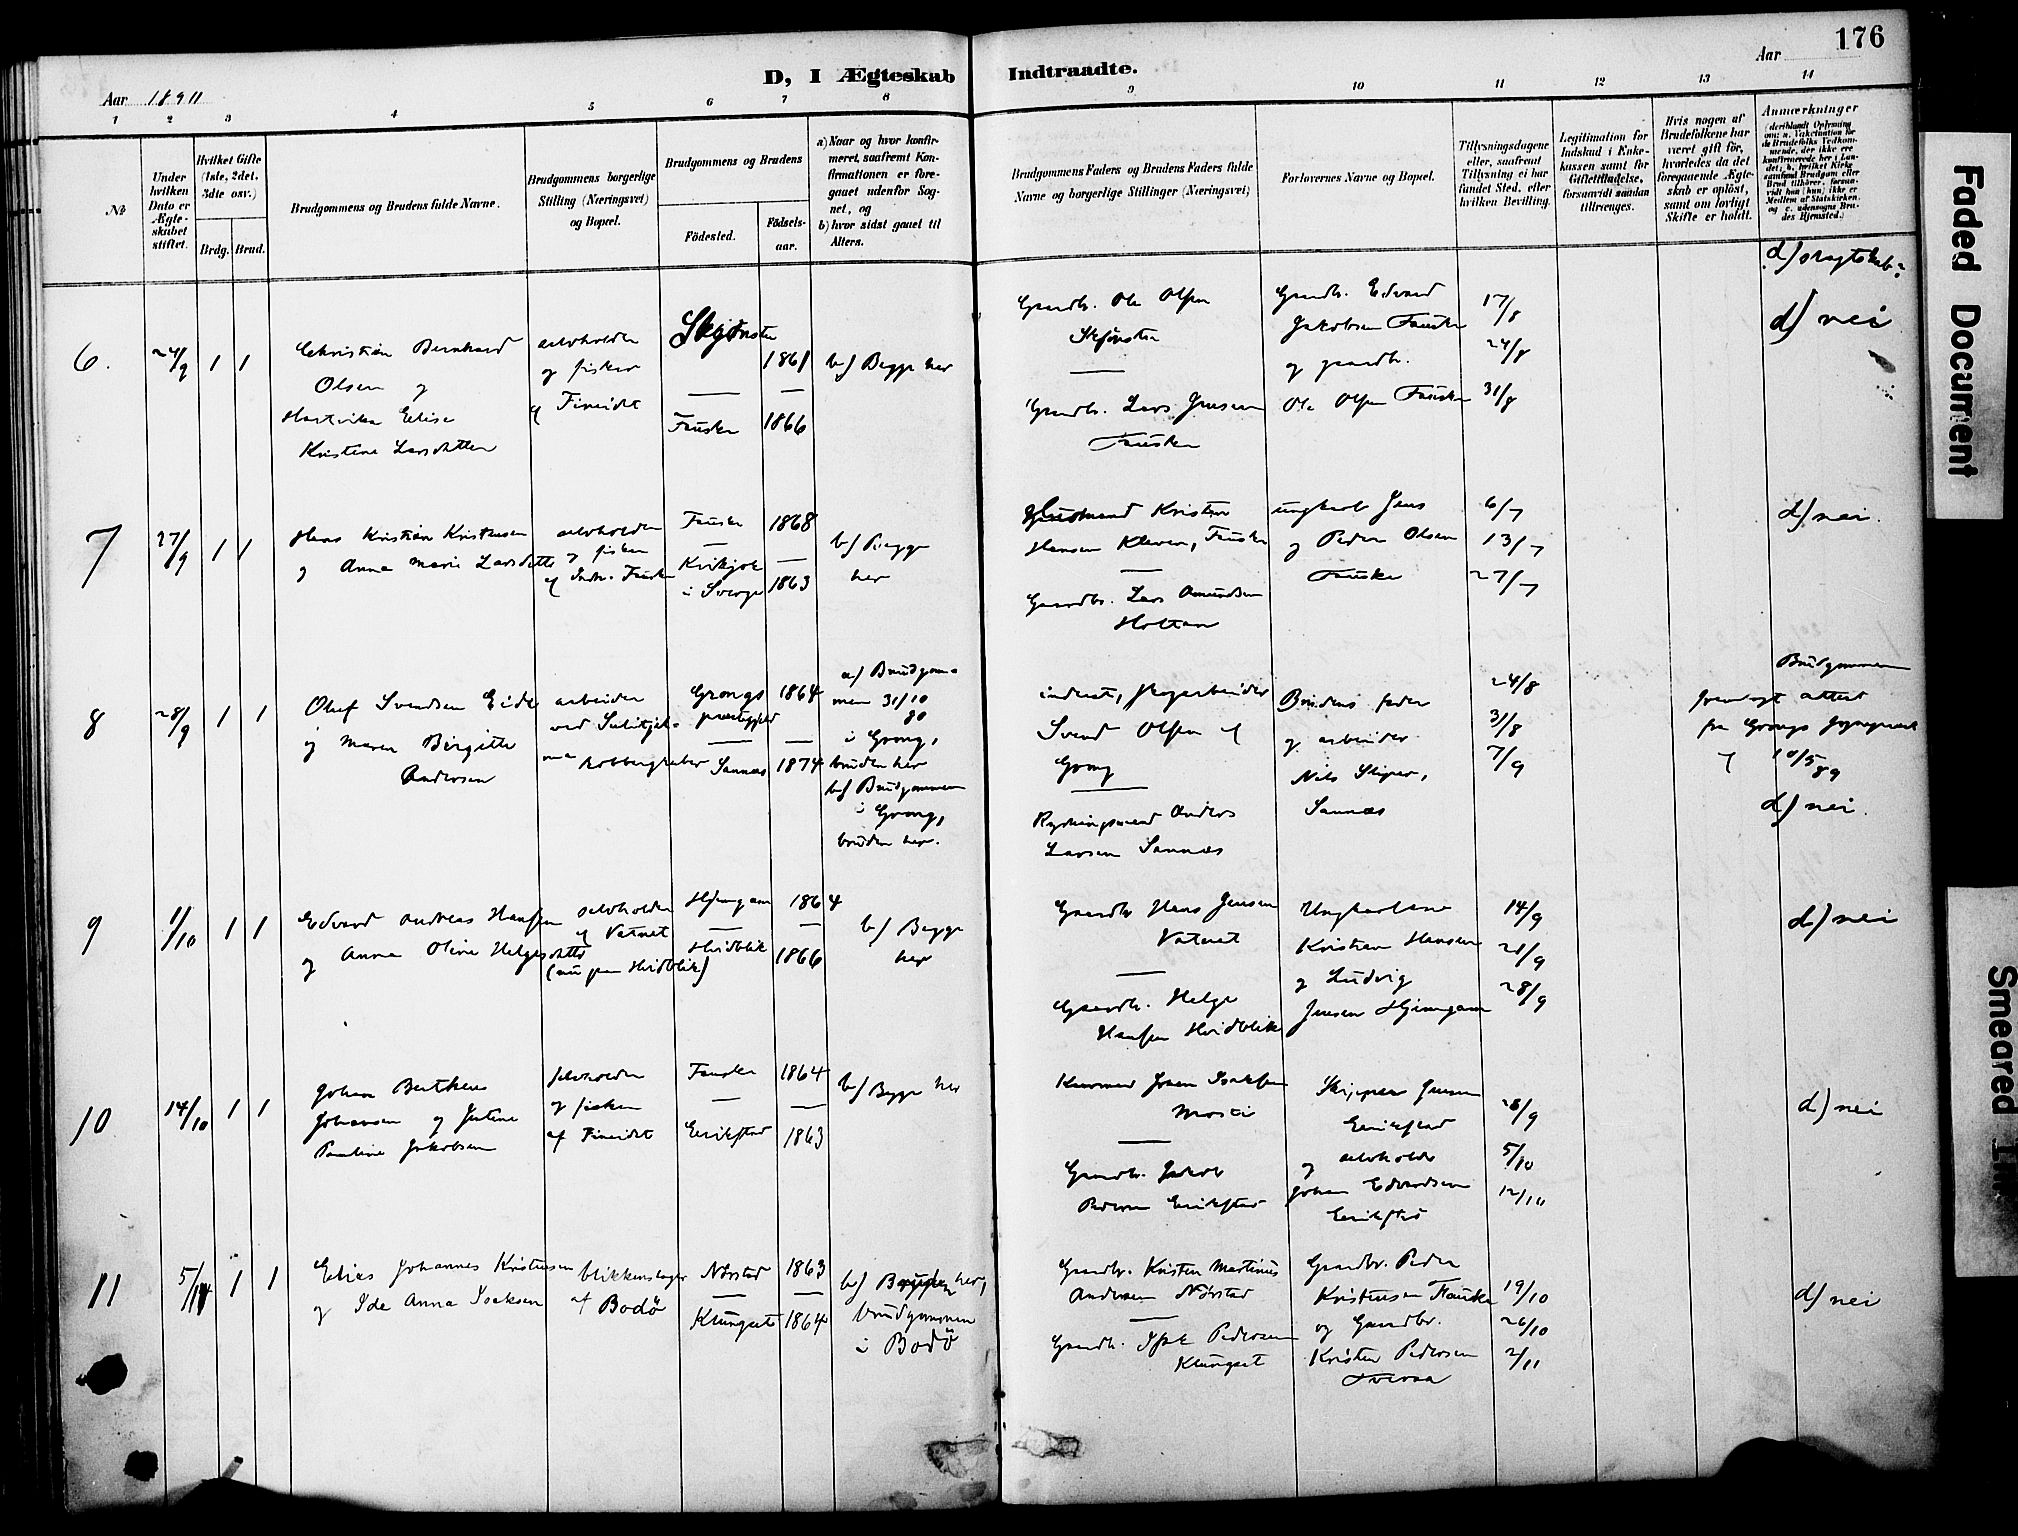 176
D, I Ægteskab Indtraadte.
Aar 1891
Aar
1 2 3 4 5 6 7 8 9 10 11 12 13 14
№
Under hvilken Dato er Ægteskabet stiftet.
Hvilket Gifte (1ste, 2det, 3dte osv.)
Brdg. Brud.
Brudgommens og Brudens fulde Navne.
Brudgommens borgerlige Stilling (Næringsvei) og Bopæl.
Brudgommens og Brudens
Födested.
Födsels-aar.
a) Naar og hvor konfirmeret, saafremt Konfirmationen er foregaaet udenfor Sognet, og
b) hvor sidst gaaet til Alters.
Brudgommens Faders og Brudens Faders fulde Navne og borgerlige Stillinger (Næringsvei)
Forlovernes Navne og Bopæl.
Tillysningsdagene eller, saafremt Tillysning ei har fundet Sted, efter hvilken Bevilling.
Legitimation for Indskud i Enkekassen samt for Giftetilladelse, forsaavidt saadan tiltrænges.
Hvis nogen af Brudefolkene har været gift för, hvorledes da det foregaaende Ægteskab er oplöst, samt om lovligt Skifte er holdt.
Anmærkninger
d) slægtskab?
6. 24/9 1 1
Christian Bernhard
Olsen og
Hartvika Elise
Kristine Larsdatter
selvholder
og fisker
af Fineidet
Skjönstu 1861
Fauske 1866
b) Begge her
Gaardbr. Ole Olsen
Skjönstu
Gaardbr. Lars Jensen
Fauske
Gaardb. Edvard
Jakobsen Fauske
og gaardb.
Ole Olsen Fauske
17/8
24/8
31/8
d) nei
7 27/9 1 1
Hans Kristian Kristensen
og Anna Marie Larsdatter
selvholder
og fisker
af Indr. Fauske
Fauske 1868
Kvikjok
i Sverge 1863
b) Begge
her
Kristen
Hansen Kleven, Fauske
Gaardbr. Lars Amundsen
Holtan
ungkarl Jens
og Peder Olsen
Fauske
6/7
13/7
27/7
d) nei.
8 28/9 1 1
Oluf Svendsen Eide
og Maren Birgitte
Andersen
arbeider
ved Sulitjelma
Kobbergruber
Grongs 1864
præstegjeld
Sannæs 1874
a) Brudgommen 31/10 80
i Grong,
bruden her
b) Brudgommen
i Grong,
bruden her.
inderst, skogarbeider
Svend Olsen af
Grong
Rydningsmand Anders
Larsen Sannæs
Brudens fader
og arbeider
Nils
Sannæs
24/8
31/8
7/9
Brudgommen
fremlagt attest
fra Grongs sognepræst
af 10/5 89
d) nei.
9 1/10 1 1
Edvard Andreas Hansen
og Anna Oline Helgesdatter
selvholder
af Vatnet
(nu paa Hvidblik)
Hjemgam 1864
Hvidblik 1866
b) Begge
her
Gaardbr Hans Jensen
Vatnet
Gaardb. Helge
Hansen Hvidblik
Ungkarlene
Kristian Hansen
og Ludvig
Jensen Hjemgam
14/9
21/9
28/9
d) nei
10 14/10 1 1
Johan Bertheus
Johansen og Justine
Pauline Jakobsen
selvholder
og fisker
af Fineidet
Fauske 1864
Erikstad 1863
b) Begge her
Kaarmand Johan Isaksen
Mosti
Gaardbr. Jakob
Pedersen Erikstad
Skipper Jensen
Erikstad
og selvholder
Johan Edvardsen
Erikstad
28/9
5/10
12/10
d) nei
11 5/11 1 1
Elias Johannes Kristensen
og Ida Anna Isaksen
blikkenslager
af Bodö
Nörstad 1863
Klungset 1864
b) Bruden her,
brudgommen
i Bodö
Gaardbr. Kristen Martinus
Andersen Nörstad
Gaardb. Isak Pedersen
Klungset
Gaardbr. Peder
Kristensen Fauske
og Gaardbr.
Kristen Pedersen
Tveraa
19/10
26/10
2/11
d) nei
Faded Document
Smeared Ink